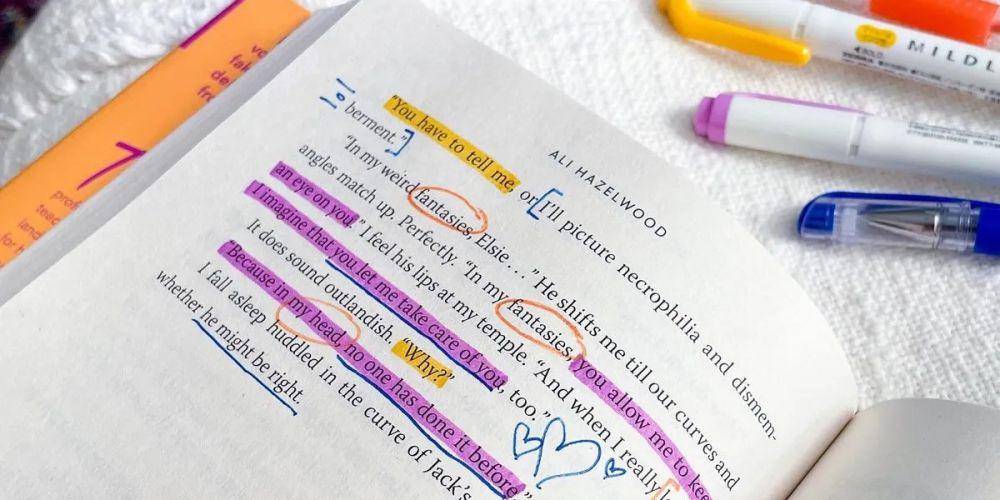 ALI HAZELWOOD
"You have to tell me, or I'll picture necrophilia and dismem-
berment."
"In my weird fantasies, Elsie . . ." He shifts me till our curves and
angles match up. Perfectly. "In my fantasies, you allow me to
an eye on you." I feel his lips at my temple. "And when I really
I imagine that you let me take care of you, too."
It does sound outlandish. "Why?"
"Because in my head, no one has done it before."
I fall asleep huddled in the curve of Jack's
whether he might be right.
7
MILDL
BOLD